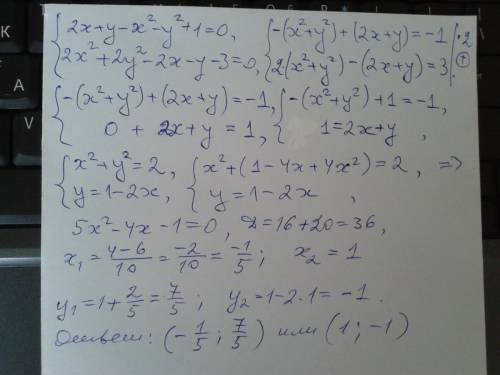 {2x+y-x²-y²+1=0, {-(x²+y²)+(2x+y)=-1 |·2
{2x²+2y²-2x-y-3=0, {2(x²+y²)-(2x+y)=3 | ⊕
{-(x²+y²)+(2x+y)=-1, {-(x²+y²)+1=-1,
{0 + 2x+y = 1, {1=2x+y ,
{x²+y²=2, {x²+(1-4x+4x²)=2, =>
{y=1-2x, {y=1-2x ,
5x²-4x-1=0, D=16+20=36,
x₁=(4-6)/10=-2/10=-1/5; x₂=1
y₁=1+2/5=7/5; y₂=1-2·1=-1.
Ответ: (-1/5; 7/5) или (1;-1)